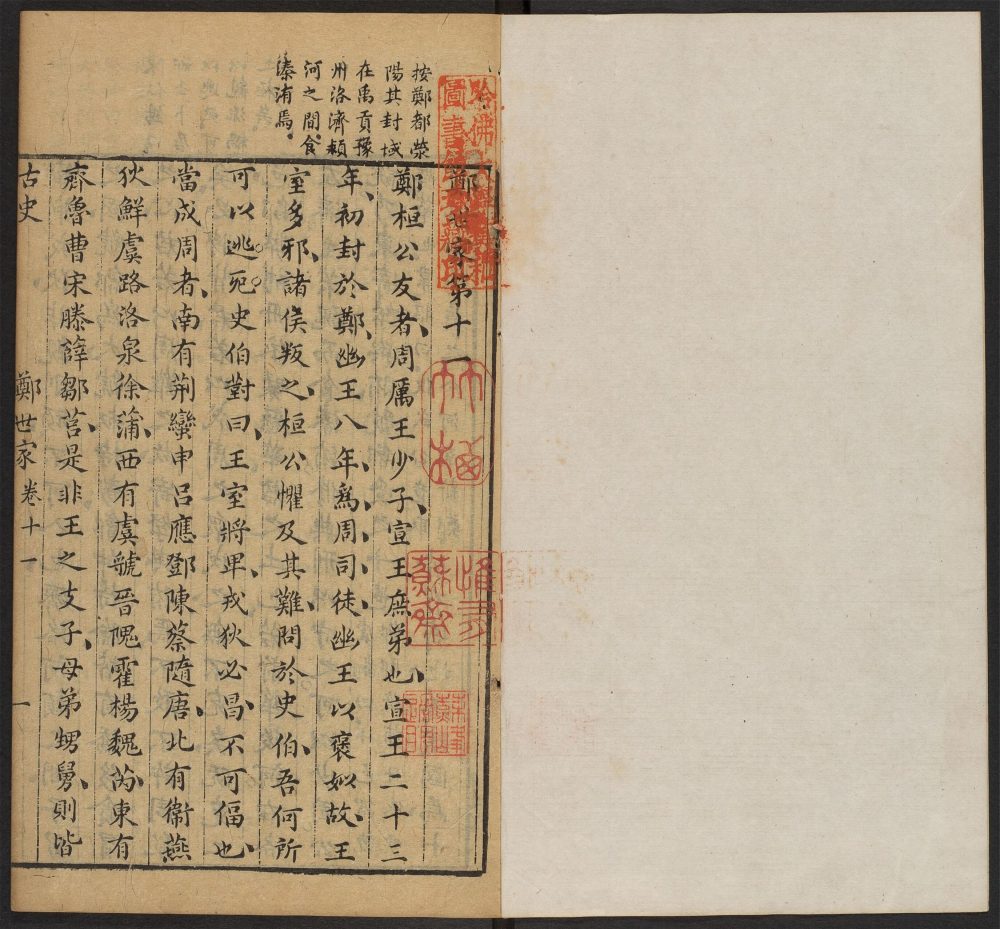 按鄭都滎
陽其封域
在禹貢豫
州洛濟潁
河之間食
溱洧焉
鄭世家第十一
鄭桓公友者周厲王少子宣王庶弟也宣王二十三
年初封於鄭幽王八年爲周司徒幽王以褒姒故王
室多邪諸侯叛之桓公懼及其難問於史伯吾何所
可以逃死史伯對曰王室將卑戎狄必昌不可偪也
當成周者南有荆蠻申呂應鄧陳蔡隨唐北有衛燕
狄鮮虞路洛泉徐蒲西有虞虢晉隗霍楊魏芮東有
齊魯曹宋滕薛鄒莒是非王之支子母弟甥舅則皆
古史
鄭世家卷十一
一